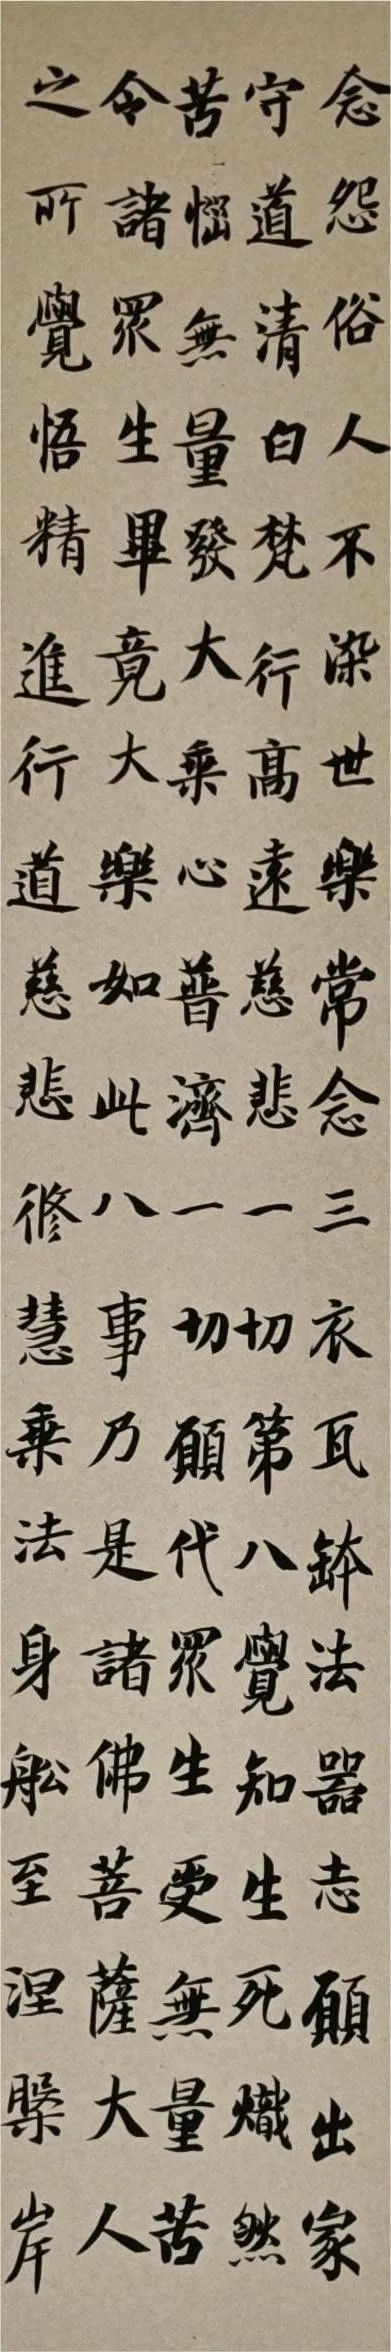 念怨俗人不染世樂常念三衣瓦鉢法器志願出家
守道清白梵行高遠慈悲一切第八覺知生死熾然
苦惱無量發大乘心普濟一切願代眾生受無量苦
令諸眾生畢竟大樂如此八事乃是諸佛菩薩大人
之所覺悟精進行道慈悲修慧乘法身船至涅槃岸